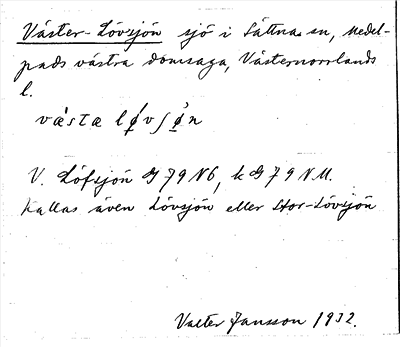 Väster-Lövsjön sjö i Sättna sn, Medel-
pads västra domsaga, Västernorrlands
l.
væ̀sta lǿvʃø̣n
V. Löfsjön G 79 N6, k G 79 N M.
Kallas även Lövsjön eller Stor-Lövsjön
Valter Jansson 1932.